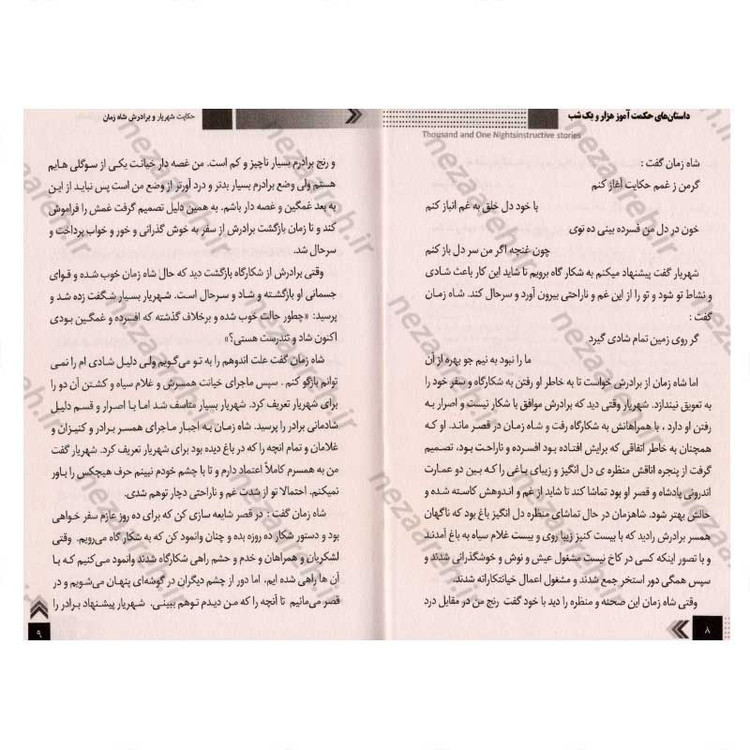 داستان‌های حکمت آموز هزار و یک شب
Thousand and One Nightsinstructive stories
شاه زمان گفت :
گرمن ز غمم حکایت آغاز کنم
با خود دل خلق به غم انباز کنم
خون در دل من فسرده بینی ده توی
چون غنچه اگر من سر دل باز کنم
شهریار گفت پیشنهاد میکنم به شکار گاه برویم تا شاید این کار باعث شادی
و نشاط تو شود و تو را از این غم و ناراحتی بیرون آورد و سرحال کند. شاه زمان
گفت :
گر روی زمین تمام شادی گیرد
ما را نبود به نیم جو بهره از آن
اما شاه زمان از برادرش خواست تا به خاطر او رفتن به شکارگاه و سفر خود را
به تعویق نیندازد. شهریار وقتی دید که برادرش موافق با شکار نیست و اصرار به
رفتن او دارد ، با همراهانش به شکارگاه رفت و شاه زمان در قصر ماند. او که
همچنان به خاطر اتفاقی که برایش افتاده بود افسرده و ناراحت بود، تصمیم
گرفت از پنجره اتاقش منظره ی دل انگیز و زیبای باغی را که بین دو عمارت
اندرونی پادشاه و قصر او بود تماشا کند تا شاید از غم و اندوهش کاسته شده و
حالش بهتر شود. شاهزمان در حال تماشای منظره دل انگیز باغ بود که ناگهان
همسر برادرش رادید که با بیست کنیز زیبا روی و بیست غلام سیاه به باغ آمدند
و با تصور اینکه کسی در کاخ نیست مشغول عیش و نوش و خوشگذرانی شدند و
سپس همگی دور استخر جمع شدند و مشغول اعمال خیانتکارانه شدند.
وقتی شاه زمان این صحنه و منظره را دید با خود گفت رنج من در مقابل درد
۸
حکایت شهریار و برادرش شاه زمان
و رنج برادرم بسیار ناچیز و کم است. من غصه دار خیانت یکی از سوگلی هایم
هستم ولی وضع برادرم بسیار بدتر و درد آورتر از وضع من است پس نباید از این
به بعد غمگین و غصه دار باشم. به همین دلیل تصمیم گرفت غمش را فراموش
کند و تا زمان بازگشت برادرش از سفر به خوش گذرانی و خور و خواب پرداخت و
سرحال شد.
وقتی برادرش از شکارگاه بازگشت دید که حال شاه زمان خوب شده و قوای
جسمانی او بازگشته و شاد و سرحال است. شهریار بسیار شگفت زده شد و
پرسید: «چطور حالت خوب شده و برخلاف گذشته که افسرده و غمگین بودی
اکنون شاد و تندرست هستی؟»
شاه زمان گفت علت اندوهم را به تو می‌گویم ولی دلیل شادی ام را نمی
توانم بازگو کنم . سپس ماجرای خیانت همسرش و غلام سیاه و کشتن آن دو را
برای شهریار تعریف کرد. شهریار بسیار متاسف شد اما با اصرار و قسم دلیل
شادمانی برادر را پرسید. شاه زمان به اجبار ماجرای همسر برادر و کنیزان و
غلامان و تمام آنچه را که در باغ دیده بود برای شهریار تعریف کرد. شهریار گفت
من به همسرم کاملاً اعتماد دارم و تا با چشم خودم نبینم حرف هیچکس را باور
نمیکنم. احتمالا تو از شدت غم و ناراحتی دچار توهم شدی.
شاه زمان گفت : در قصر شایعه سازی کن که برای ده روز عازم سفر خواهی
بود و دستور شکار ده روزه بده و چنان وانمود کن که به شکار گاه می‌رویم. وقتی
لشکریان و همراهان و خدم و حشم راهی شکارگاه شدند وانمود می‌کنیم که با
آن ها راهی شده ایم. اما دور از چشم دیگران در گوشه‌ای پنهان می‌شویم و در
قصر می‌مانیم تا آنچه را که من دیدم توهم ببینی. شهریار پیشنهاد برادر را
۹
nezaareh.ir